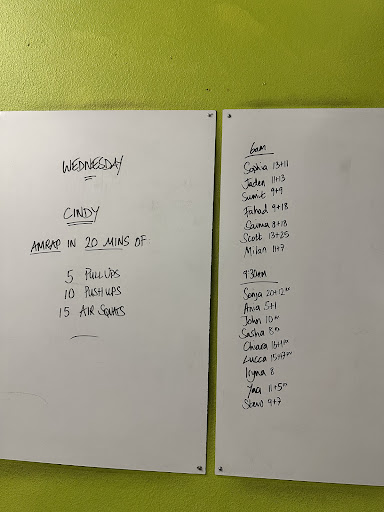 WEDNESDAY
CINDY
AMRAP IN 20 MINS OF
5 PULL UPS
10 PUSH UPS
15 AIR SQUATS
6am
Sophia 13+11
Jaden 11+13
Sumit 9+9
Fahad 9+18
8+18
Scott 13+25
Milan 11+7
9:30am
Sonja 20+12
Ania 5+1
John 10
Sasha 8
Chiara
Lucca 15+7
Iryna 8
11+5
9+7